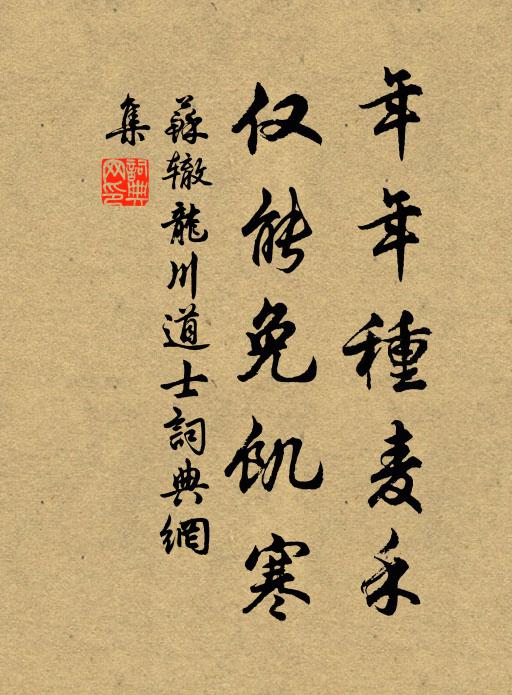 年年種麦禾
仅能免飢寒
蘇辙龍川道士詞典網
集
詞典
网印